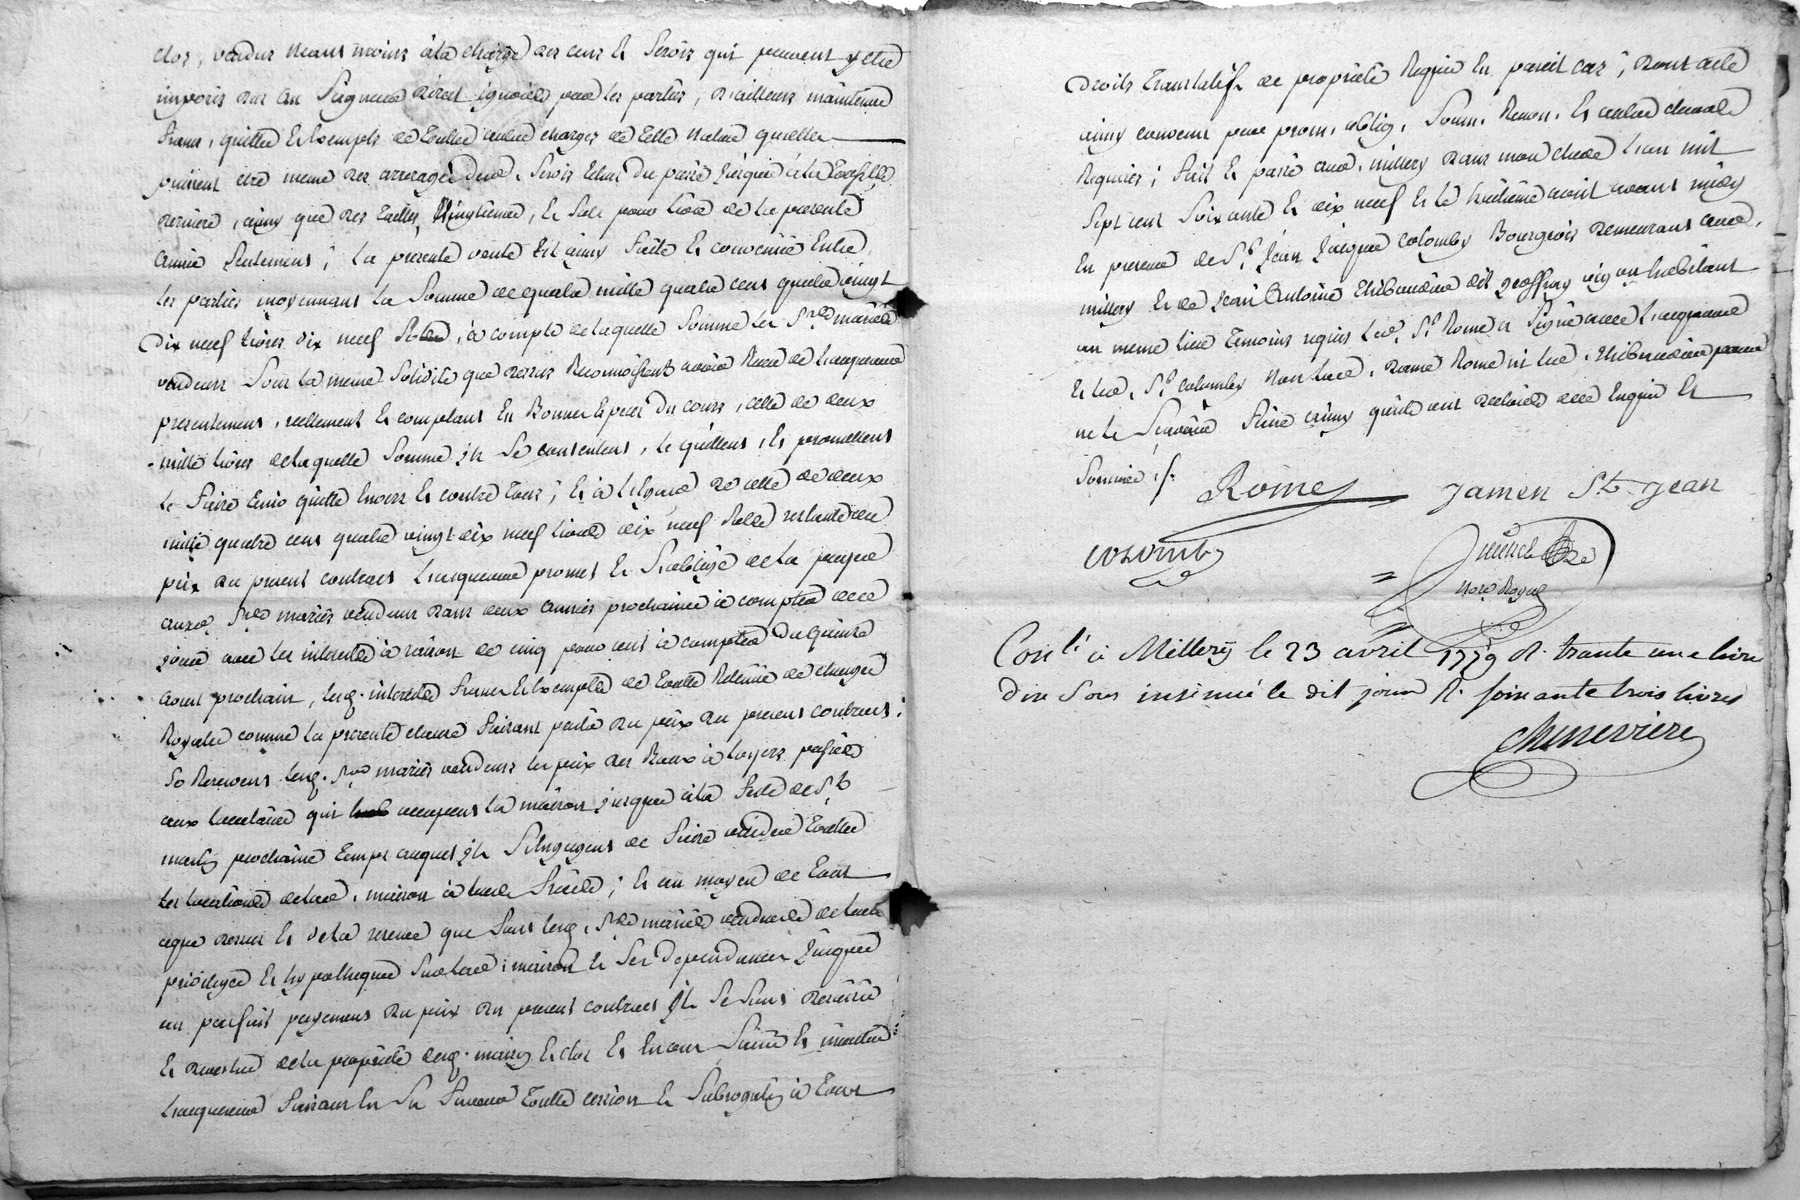 clos, vendus neant moins à la charge des cens et servis qui peuvent y etre
imposés par un Seigneur direct ignoré par les parties, d'ailleurs maintenue
franc, quitte et exempts de toutes autres charges de telle nature qu'elles
puissent etre meme des arrerages desd. servis echus du passé jusques à la
derniere, ainsy que des tailles, vingtieme, et sels pour tiers de la presente
année seulement; la presente vente est ainsy faite et convenüe entre
les parties moyennant la somme de quatre mille quatre cens quatre vingt
dix neuf livres dix neuf sols, à compte de laquelle somme les Srs mariés
vendeurs sous la meme solidité que dessus reconnoissent avoir receu de l'acquereur
presentement, reellement et comptant en bonnes especes du cours, celle de deux
mille livres de laquelle somme ils se contentent, le quittent, et promettent
le faire tenir quitte envers et contre tous; et à l'egard de celle de deux
mille quatre cens quatre vingt dix neuf livres dix neuf sols restante du
prix du present contract l'acquereur promet et s'oblige de la payer
auxd. Srs mariés vendeurs dans deux années prochaines à compter de ce
jour avec les interests à raison de cinq pour cent à compter du quinze
aoust prochain, lesq. interests francs et exempts de toutte retenüe de charges
Royales comme la presente clause faisant partie du prix du present contract;
se reservent lesq. Srs mariés vendeurs les prix des Baux à loyers passés
aux locataires qui occupent la maison jusques à la feste de St
martin prochaine temps auquel ils s'engagent de faire vuider touttes
les locataires de lad. maison à leurs frais; et au moyen de tout
ceque dessus et de la reserve que font lesq. Srs mariés vendeurs de leurs
privileges et hypotheques sur lad. maison et ses dependances jusques
au parfait payement du prix du present contract ils se sont devestis
de la propriété desq. maison et clos et en ont saisi et investi
l'acquereur faisant en sa faveur toutte cession et subrogation à tous
droits translatifs de propriété requise en pareil cas; dont acte
ainsy convenu par prom. oblig. soum. renon. et autres clauses
requises; fait et passé aud. millery dans mon etude l'an mil
sept cent soixante et dix neuf et le huitième avril avant midy
en presence de Sr Jean Jacques Colomby Bourgeois demeurant aud.
millery et de Jean Antoine Thibaudier dit geoffray vig.on habitant
au meme lieu temoins requis led. Sr Rome a signé avec l'acquereur
et led. Sr Colomby non lad. dame Rome ni led. Thibaudier pour
ne le sçavoir faire ainsy qu'ils ont declaré de ce enquis et
sommés /.
Rome Jamen St Jean
colomby
nore Royal
Conlé à Millery le 23 avril 1779 R. trante une livre
dix sous insinué le dit jour R. soixante trois livres
Chenevriere